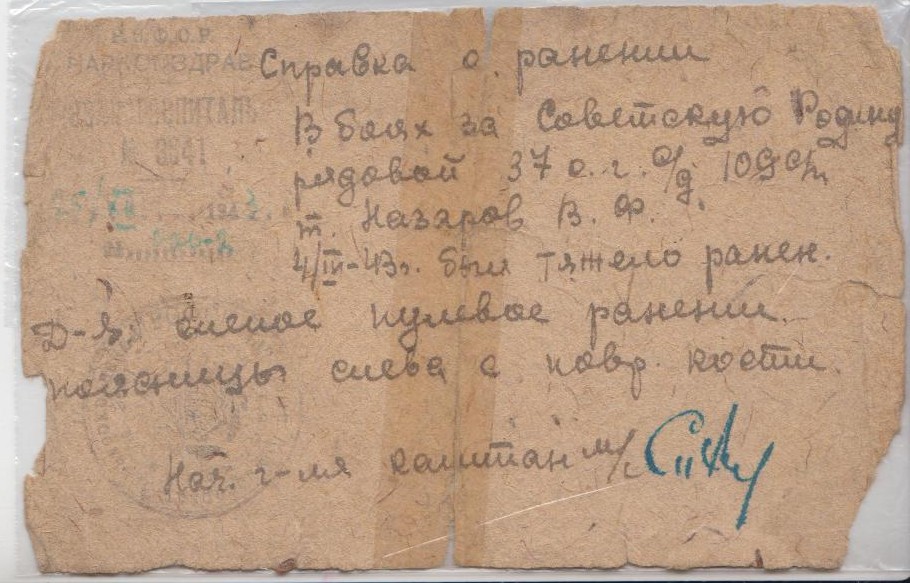 НАРКОМЗДРАВ
№ 3041
Справка о ранении
В боях за Советскую Родину
рядовой 37 о.г. с/д 109 сп
т. Назаров В. Ф.
4/III-43г. был тяжело ранен.
Д-з: слепое пулевое ранении
поясницы слева с повр. кости.
Нач. г-ля капитан м/с